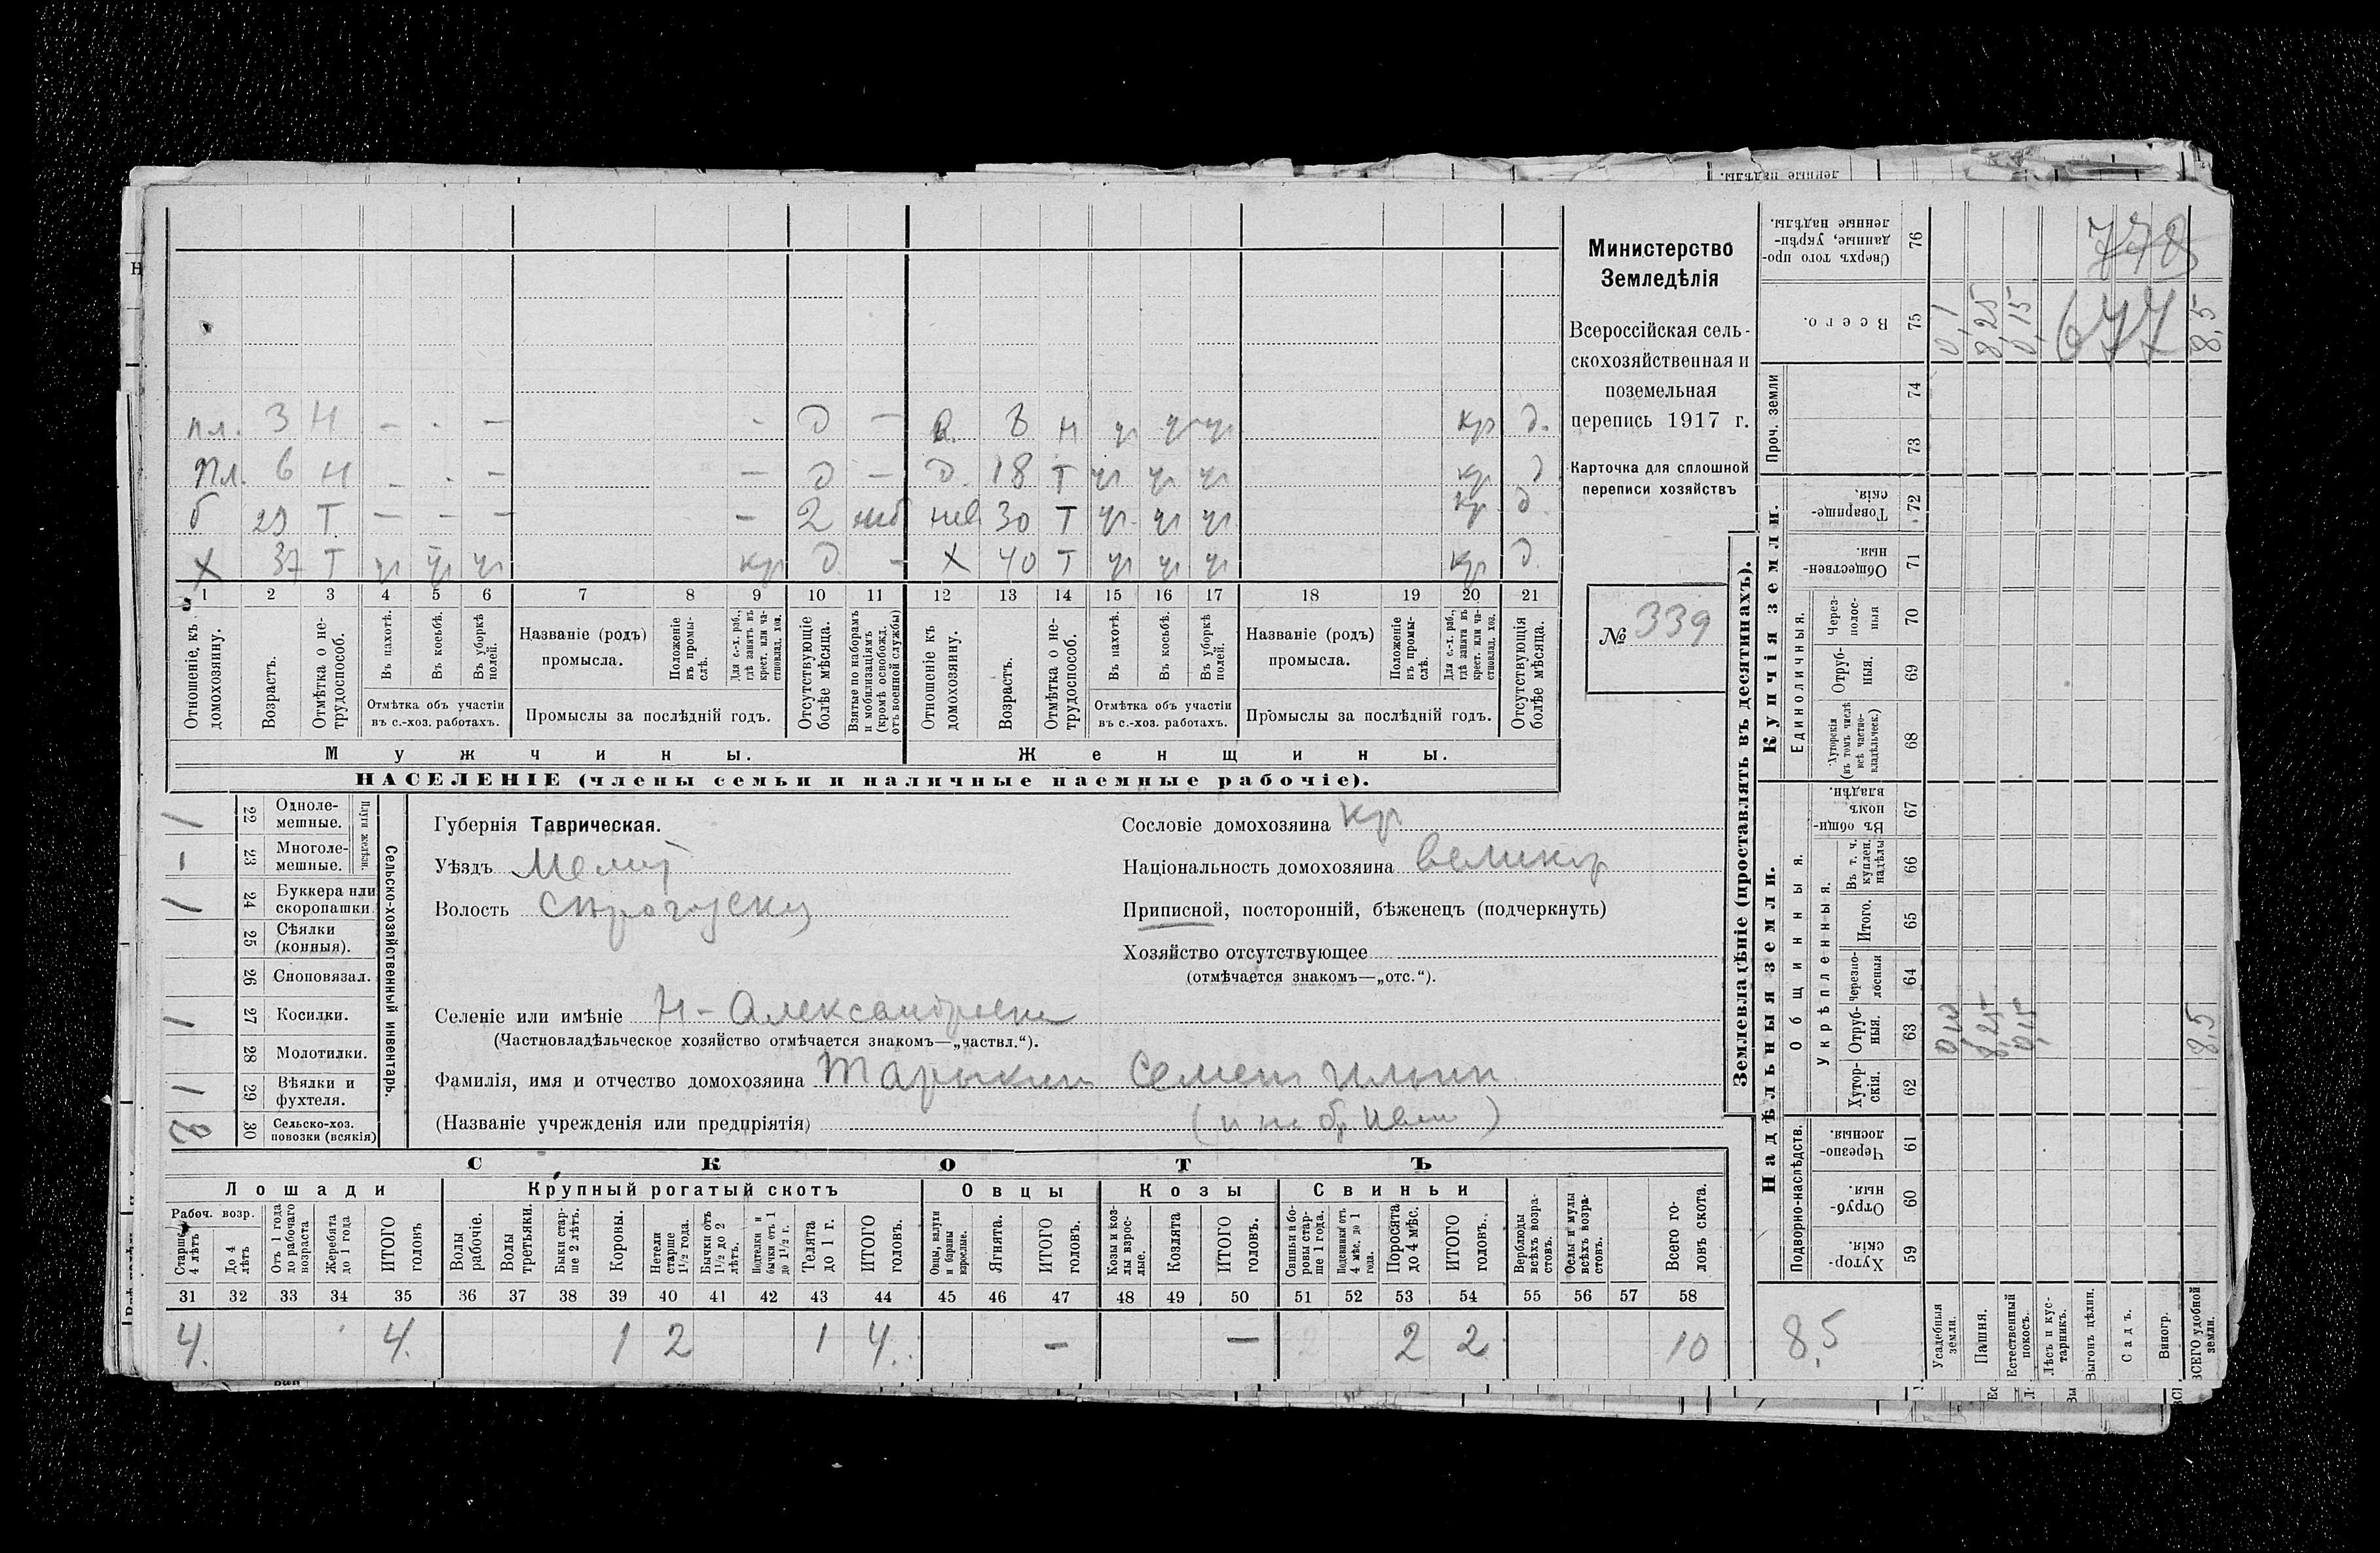 Министерство
Земледѣлія
Всероссійская сель-
скохозяйственная и
поземельная
перепись 1917 г.
Карточка для сплошной
переписи хозяйствъ
№ 339
пл. 3 Н - - - - д - 8 н уч уч уч кр д.
пл. 6 Н - - - - д - д. 18 Т уч уч уч кр д
б 29 Т - - - - 2 30 Т уч уч уч кр д.
х 37 Т уч уч уч кр д - х 40 Т уч уч уч кр д.
1 2 3 4 5 6 7 8 9 10 11 12 13 14 15 16 17 18 19 20 21
Отношеніе, къ домохозяину.
Возрастъ.
Отмѣтка о не-трудоспособ.
Въ пахотѣ.
Въ косьбѣ.
Въ уборкѣ полей.
Отмѣтка объ участіи
въ с.-хоз. работахъ.
Названіе (родъ)
промысла.
Положеніе въ промы-слѣ.
Для с.-х. раб., гдѣ занятъ въ крест. или ча-стновлад. хоз.
Промыслы за послѣдній годъ.
Отсутствующіе болѣе мѣсяца.
Взятые по наборамъ и мобилизаціямъ (кромѣ освобожд. отъ военной службы)
Отношеніе къ домохозяину.
Возрастъ.
Отмѣтка о не-трудоспособ.
Въ пахотѣ.
Въ косьбѣ.
Въ уборкѣ полей.
Отмѣтка объ участіи
въ с.-хоз. работахъ.
Названіе (родъ)
промысла.
Положеніе въ промы-слѣ.
Для с.-х. раб., гдѣ занята въ крест. или ча-стновлад. хоз.
Промыслы за послѣдній годъ.
Отсутствующія болѣе мѣсяца.
Мужчины. Женщины.
НАСЕЛЕНІЕ (члены семьи и наличные наемные рабочіе).
Сельско-хозяйственный инвентарь.
Плуги желѣзн.
1 22 Одноле-мешные.
- 23 Многоле-мешные.
1 24 Буккера или скоропашки
25 Сѣялки (конныя).
26 Сноповязал.
1 27 Косилки.
28 Молотилки.
1 29 Вѣялки и фухтеля.
2 30 Сельско-хоз. повозки (всякія)
Губернія Таврическая.
Уѣздъ Мелит
Волость
Сословіе домохозяина кр
Національность домохозяина великор
Приписной, посторонній, бѣженецъ (подчеркнуть)
Хозяйство отсутствующее
(отмѣчается знакомъ—„отс.“).
Селеніе или имѣніе Н-Александровка
(Частновладѣльческое хозяйство отмѣчается знакомъ—„частвл.“).
Фамилія, имя и отчество домохозяина Семен Ильин
(Названіе учрежденія или предпріятія)
СКОТЪ
Лошади Крупный рогатый скотъ Овцы Козы Свиньи
Рабоч. возр.
Старше 4 лѣтъ
До 4 лѣтъ
Отъ 1 года до рабочаго возраста
Жеребята до 1 года
ИТОГО головъ
Волы рабочіе.
Волы третьяки.
Быки стар-ше 2 лѣтъ.
Коровы.
Нетели старше 1½ года.
Бычки отъ 1½ до 2 лѣтъ.
Подтелки и бычки отъ 1 до 1½ г.
Телята до 1 г.
ИТОГО головъ.
Овцы, валухи и бараны взрослые.
Ягнята.
ИТОГО головъ.
Козы и коз-лы взрос-лые.
Козлята
ИТОГО головъ.
Свиньи и бо-ровы стар-ше 1 года.
Подсвинки отъ 4 мѣс. до 1 года.
Поросята до 4 мѣс.
ИТОГО головъ.
Верблюды всѣхъ возра-стовъ.
Ослы и мулы всѣхъ возра-стовъ.
Всего го-ловъ скота.
31 32 33 34 35 36 37 38 39 40 41 42 43 44 45 46 47 48 49 50 51 52 53 54 55 56 57 58
4. 4. 1 2 1 4. - - 2 2 10
Землевладѣніе (проставлять въ десятинахъ).
Купчія земли.
Надѣльныя земли.
Сверхъ того про-данные, укрѣп-ленные надѣлы. 76
778
Всего. 75 0,1 8,25 0,15 677 8,5
Проч. земли 74 73
Товарище-скія. 72
Обществен-ныя. 71
Единоличныя.
Через-полос-ныя 70
Отруб-ныя. 69
Хуторскія (въ томъ числѣ всѣ частно-владѣльческ.) 68
Общинныя.
Въ общи-номъ владѣн. 67
Укрѣпленныя.
Въ т. ч. куплен. надѣлы 66
Итого. 65
Черезпо-лосныя 64
Отруб-ныя. 63 8,25 0,15 8,5
Хутор-скія. 62
Подворно-наслѣдств.
Черезпо-лосныя. 61
Отруб-ныя. 60
Хутор-скія. 59
8,5
Усадебныя земли.
Пашня.
Естественный покосъ.
Лѣсъ и кус-тарникъ.
Выгонъ цѣлин.
Садъ.
Виногр.
ВСЕГО удобной земли.